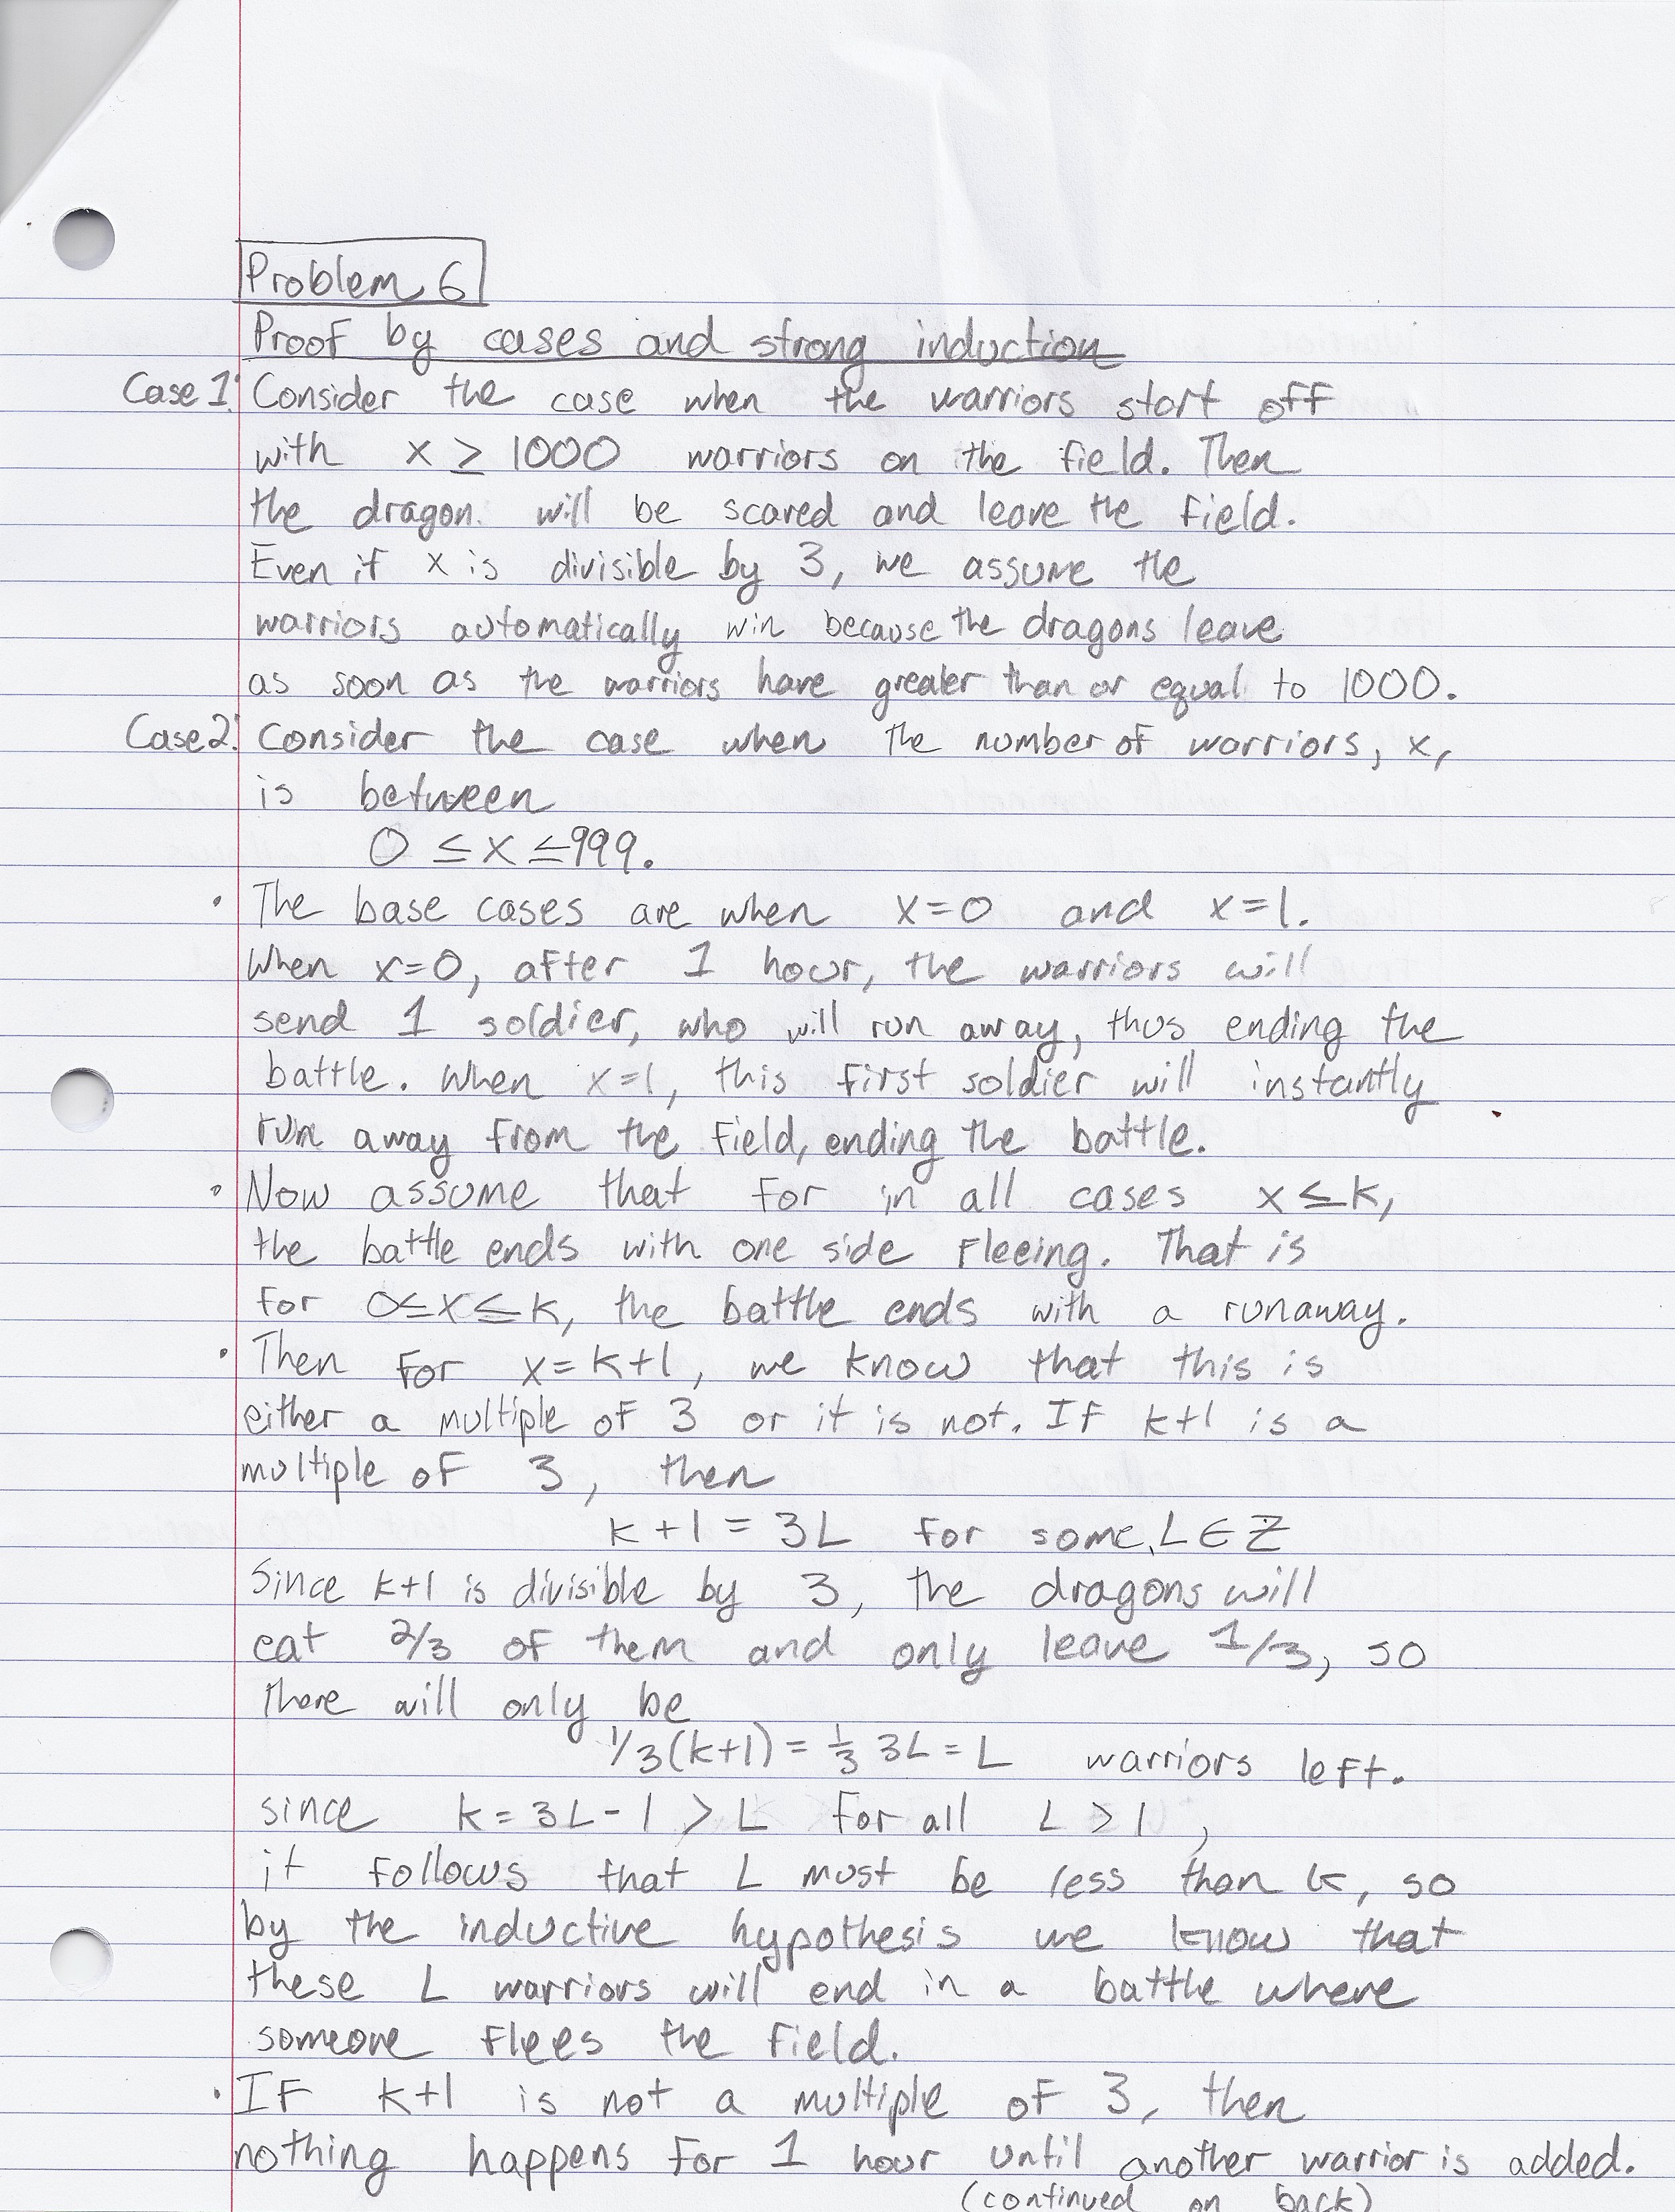 Problem 6
Proof by cases and strong induction
Case 1: Consider the case when the warriors start off
with x ≥ 1000 warriors on the field. Then
the dragon will be scared and leave the field.
Even if x is divisible by 3, we assume the
warriors automatically win because the dragons leave
as soon as the warriors have greater than or equal to 1000.
Case 2: Consider the case when the number of warriors, x,
is between
0 ≤ x ≤ 999.
• The base cases are when x=0 and x=1.
When x=0, after 1 hour, the warriors will
send 1 soldier, who will run away, thus ending the
battle. When x=1, this first soldier will instantly
run away from the field, ending the battle.
• Now assume that for in all cases x ≤ k,
the battle ends with one side fleeing. That is
for 0≤x≤k, the battle ends with a runaway.
• Then for x=k+1, we know that this is
either a multiple of 3 or it is not. If k+1 is a
multiple of 3, then
k+1 = 3L for some L∈Z
Since k+1 is divisible by 3, the dragons will
eat 2/3 of them and only leave 1/3, so
there will only be
1/3(k+1) = 1/3 3L = L warriors left.
since k = 3L-1 > L for all L > 1,
it follows that L must be less than k, so
by the inductive hypothesis we know that
these L warriors will end in a battle where
someone flees the field.
• If k+1 is not a multiple of 3, then
nothing happens for 1 hour until another warrior is added.
(continued on back)